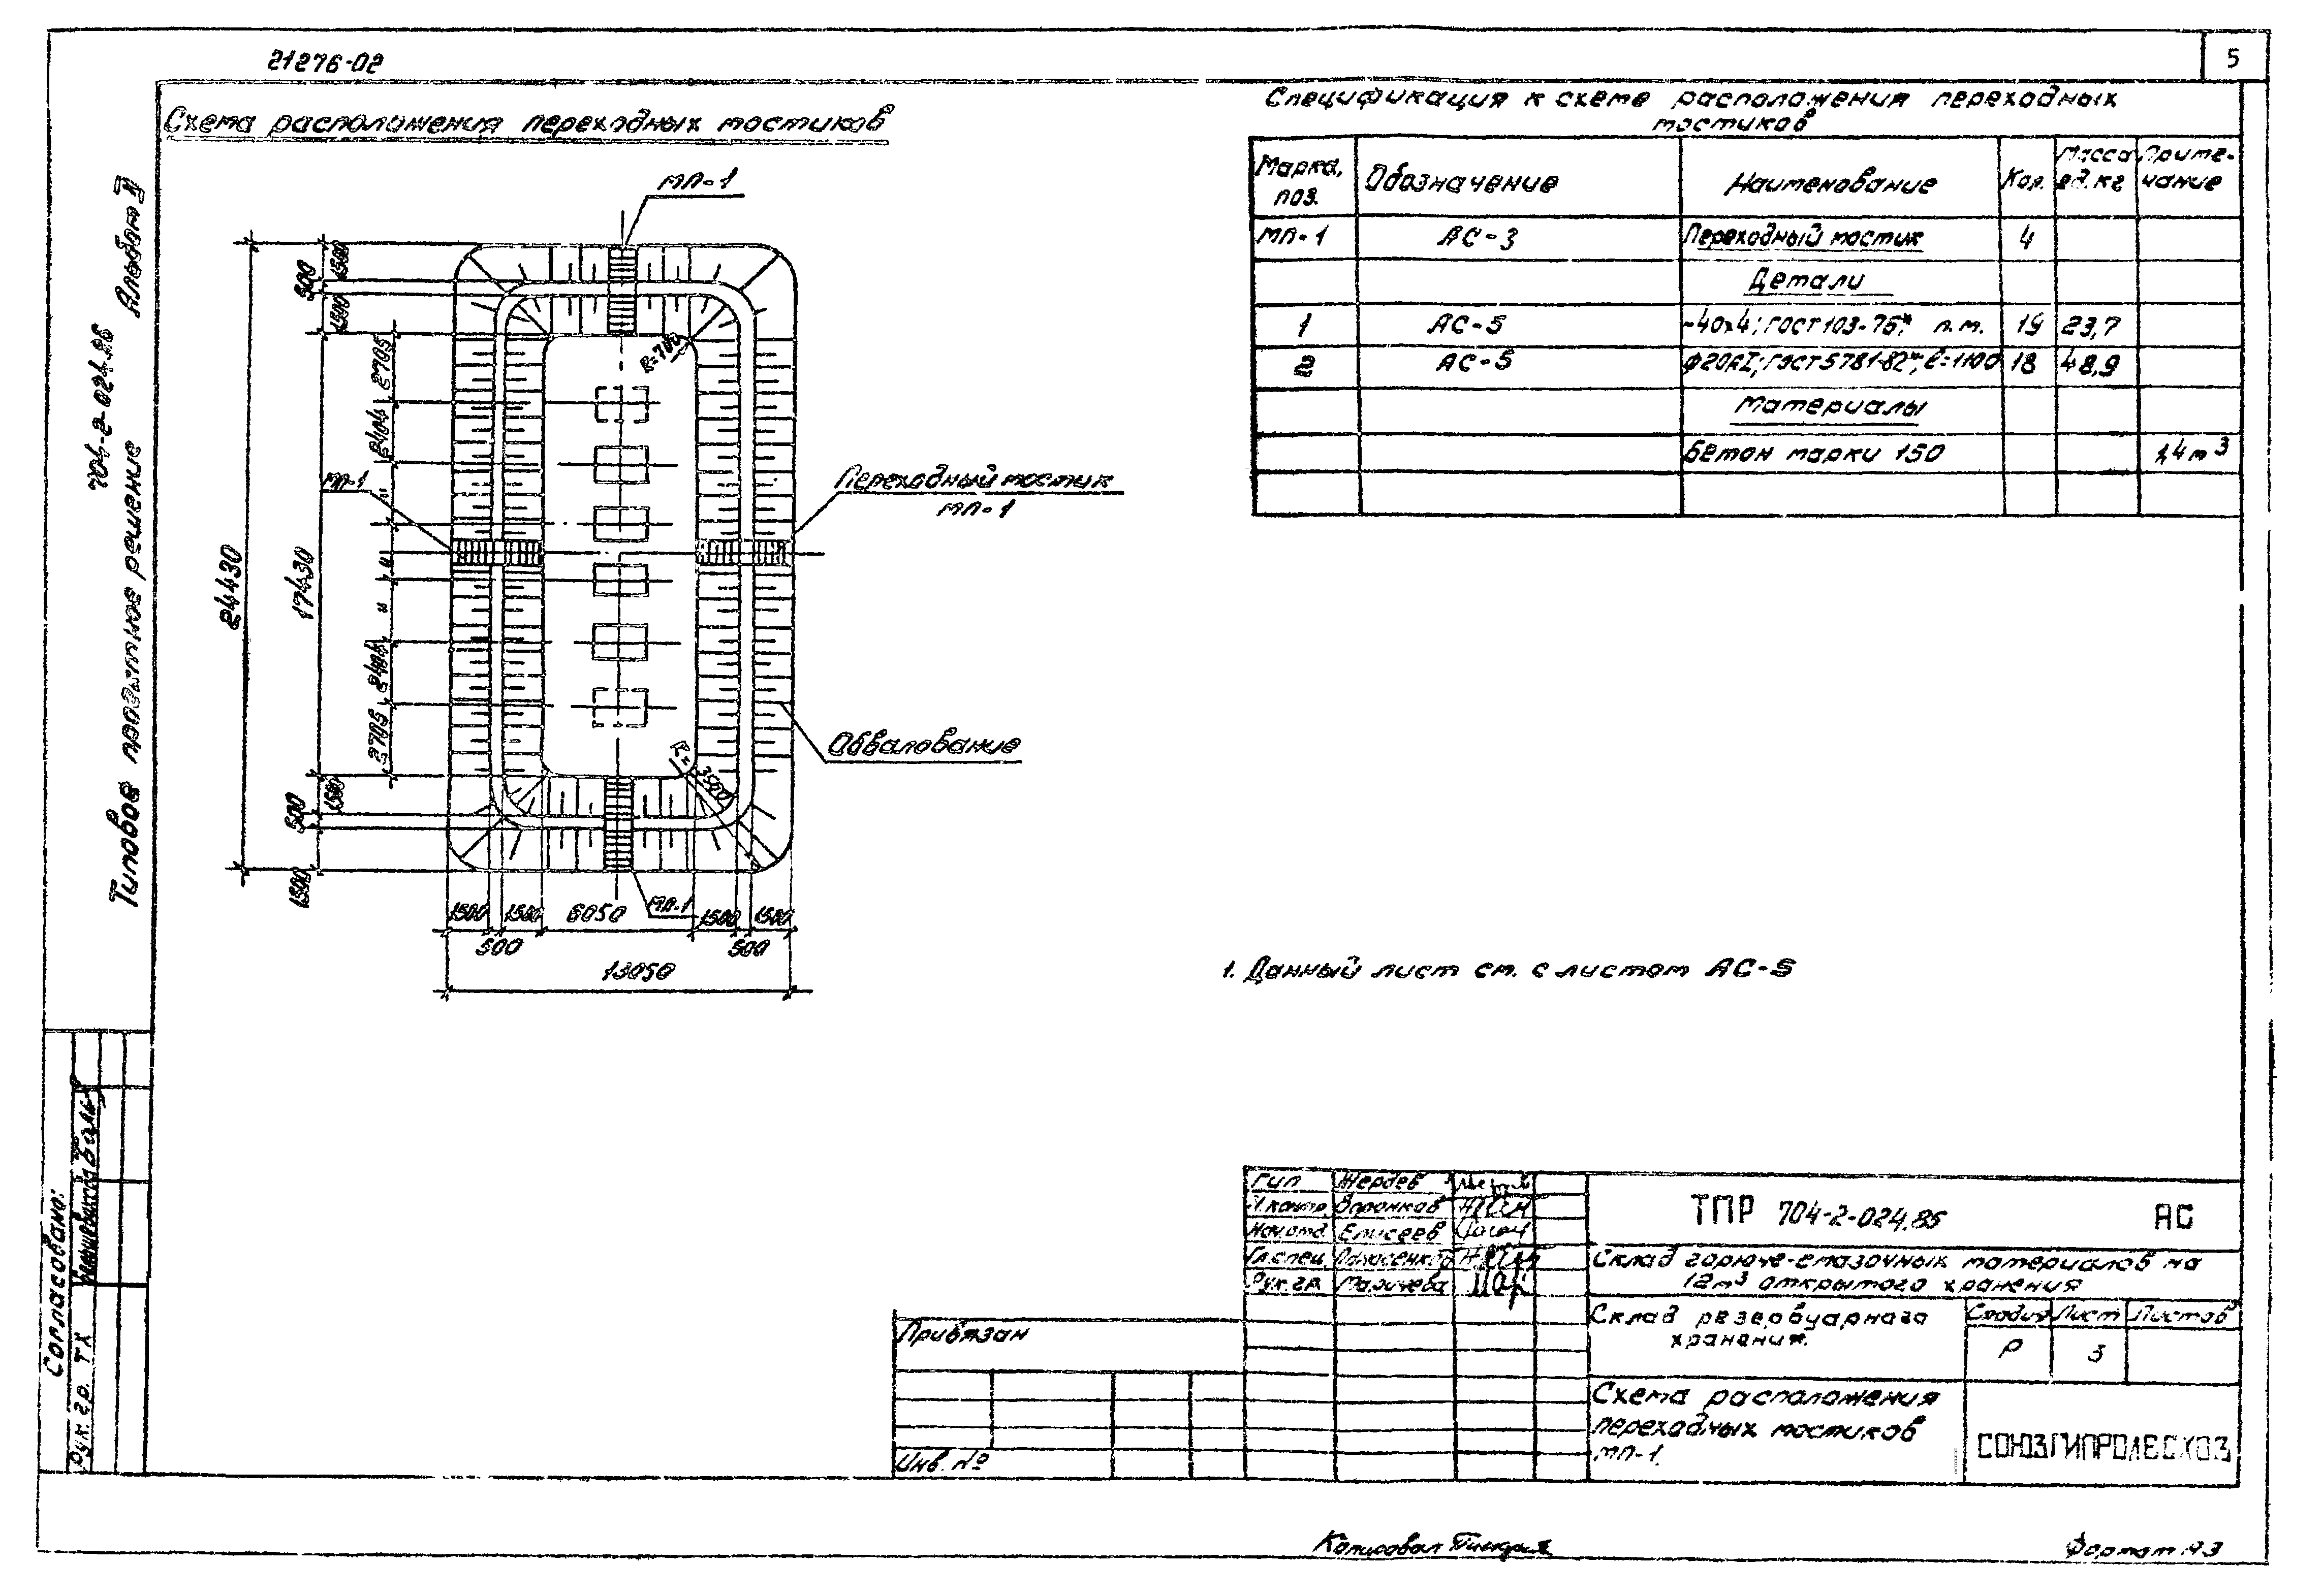 21276-02
5
Схема расположения переходных мостиков
МП-1
24430
17430
1500
500
1500
2705
2404
"
"
"
2404
2705
1500
500
1500
R=700
МП-1
Переходный мостик
МП-1
R=3500
Обвалование
МП-1
1500
1500
6050
1500
1500
500
500
13050
Спецификация к схеме расположения переходных
мостиков
Марка, поз. Обозначение Наименование Кол. Масса ед. кг Приме-чание
МП-1 АС-3 Переходный мостик 4
Детали
1 АС-5 -40х4; ГОСТ 103-76*, п.м. 19 23,7
2 АС-5 Ф20АI; ГОСТ 5781-82*, ℓ=1100 18 48,9
Материалы
Бетон марки 150 1,4 м³
1. Данный лист см. с листом АС-5
Типовое проектное решение 704-2-024.86 Альбом II
Согласовано:
Рук. гр. ТХ
ГИП Жердев
Н.контр. Воронков
Нач.отд. Елисеев
Гл.спец.
Рук.гр. Маричева
ТПР 704-2-024.86 АС
Склад горюче-смазочных материалов на
12м³ открытого хранения
Склад резервуарного
хранения.
Стадия Лист Листов
Р 3
Схема расположения
переходных мостиков
МП-1.
СОЮЗГИПРОЛЕСХОЗ
Привязан
Инв. №
Копировал
Формат А3